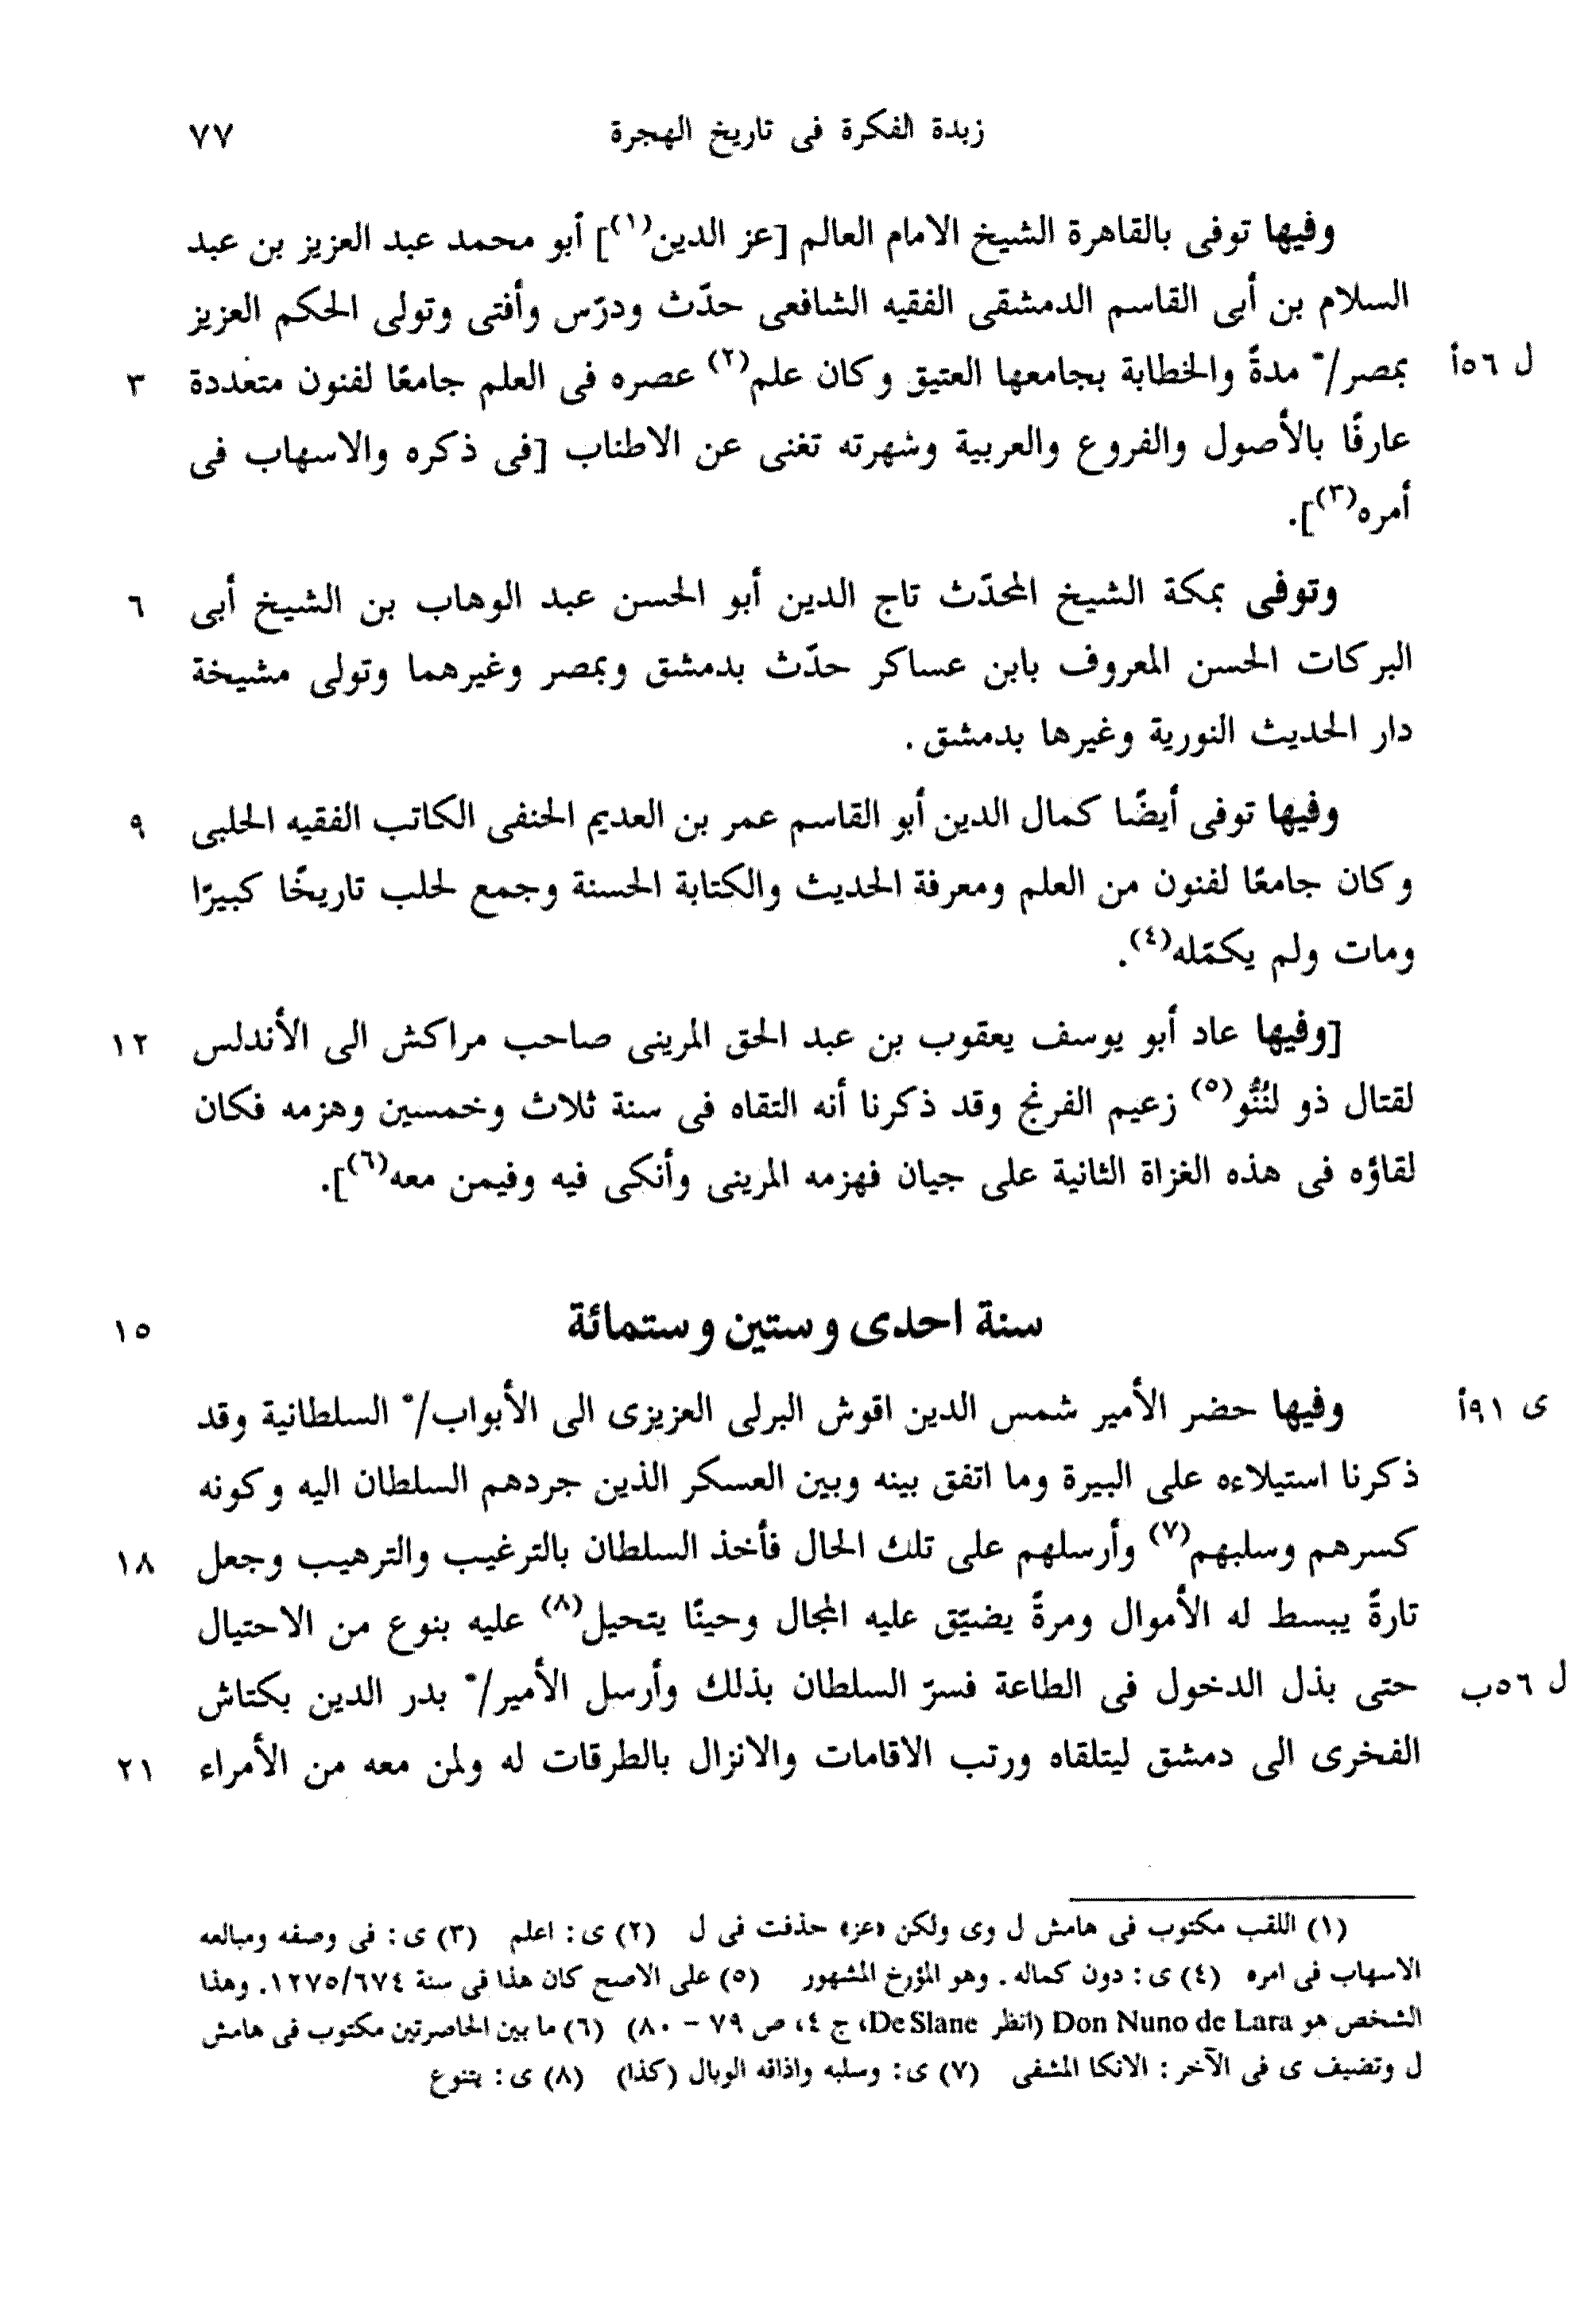 زبدة الفكرة فى تاريخ الهجرة ٧٧
وفيها توفى بالقاهرة الشيخ الامام العالم [عز الدين(١)] أبو محمد عبد العزيز بن عبد
السلام بن أبى القاسم الدمشقى الفقيه الشافعى حدّث ودرّس وأفتى وتولى الحكم العزيز
ل ٥٦أ بمصر/* مدةً والخطابة بجامعها العتيق وكان علم(٢) عصره فى العلم جامعًا لفنون متعددة ٣
عارفًا بالأصول والفروع والعربية وشهرته تغنى عن الاطناب [فى ذكره والاسهاب فى
أمره(٣)].
وتوفى بمكة الشيخ المحدّث تاج الدين أبو الحسن عبد الوهاب بن الشيخ أبى ٦
البركات الحسن المعروف بابن عساكر حدّث بدمشق وبمصر وغيرهما وتولى مشيخة
دار الحديث النورية وغيرها بدمشق.
وفيها توفى أيضًا كمال الدين أبو القاسم عمر بن العديم الحنفى الكاتب الفقيه الحلبى ٩
وكان جامعًا لفنون من العلم ومعرفة الحديث والكتابة الحسنة وجمع لحلب تاريخًا كبيرًا
ومات ولم يكمّله(٤).
[وفيها عاد أبو يوسف يعقوب بن عبد الحق المرينى صاحب مراكش الى الأندلس ١٢
لقتال ذو لنُنُّو(٥) زعيم الفرنج وقد ذكرنا أنه التقاه فى سنة ثلاث وخمسين وهزمه فكان
لقاؤه فى هذه الغزاة الثانية على جيان فهزمه المرينى وأنكى فيه وفيمن معه(٦)].
سنة احدى وستين وستمائة ١٥
ى ٩١أ وفيها حضر الأمير شمس الدين اقوش البرلى العزيزى الى الأبواب/* السلطانية وقد
ذكرنا استيلاءه على البيرة وما اتفق بينه وبين العسكر الذين جردهم السلطان اليه وكونه
كسرهم وسلبهم(٧) وأرسلهم على تلك الحال فأخذ السلطان بالترغيب والترهيب وجعل ١٨
تارةً يبسط له الأموال ومرةً يضيّق عليه المجال وحينًا يتحيل(٨) عليه بنوع من الاحتيال
ل ٥٦ب حتى بذل الدخول فى الطاعة فسرّ السلطان بذلك وأرسل الأمير/* بدر الدين بكتاش
الفخرى الى دمشق ليتلقاه ورتب الاقامات والانزال بالطرقات له ولمن معه من الأمراء ٢١
(١) اللقب مكتوب فى هامش ل وى ولكن «عز» حذفت فى ل (٢) ى: اعلم (٣) ى: فى وصفه ومبالعه
الاسهاب فى امره (٤) ى: دون كماله. وهو المؤرخ المشهور (٥) على الاصح كان هذا فى سنة ١٢٧٥/٦٧٤. وهذا
الشخص هو Don Nuno de Lara (انظر De Slane، ج ٤، ص ٧٩ - ٨٠) (٦) ما بين الحاصرتين مكتوب فى هامش
ل وتضيف ى فى الآخر: الانكا المشفى (٧) ى: وسلبه واذاقه الوبال (كذا) (٨) ى: يتنوع